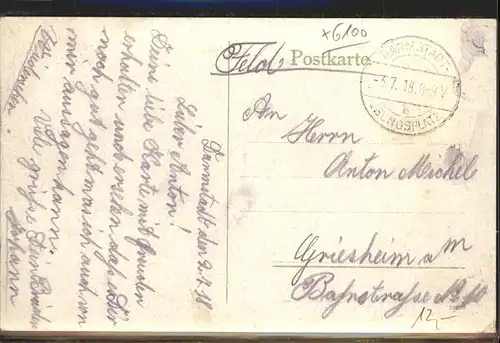 x6100
Feld Postkarte
DARMSTADT
-3.7.18. 8-9V
b
ÜBUNGSPLATZ
An
Herrn
Anton Michel
Griesheim a M
Bahnstrasse No
12,-
Darmstadt den 2.7.18.
Lieber Anton!
Deine liebe Karte mit Freuden
erhalten und ersehen daß es Dir
noch gut geht was ich auch von
mir aussagen kann.
Viele Grüße Dein Bruder
Johann